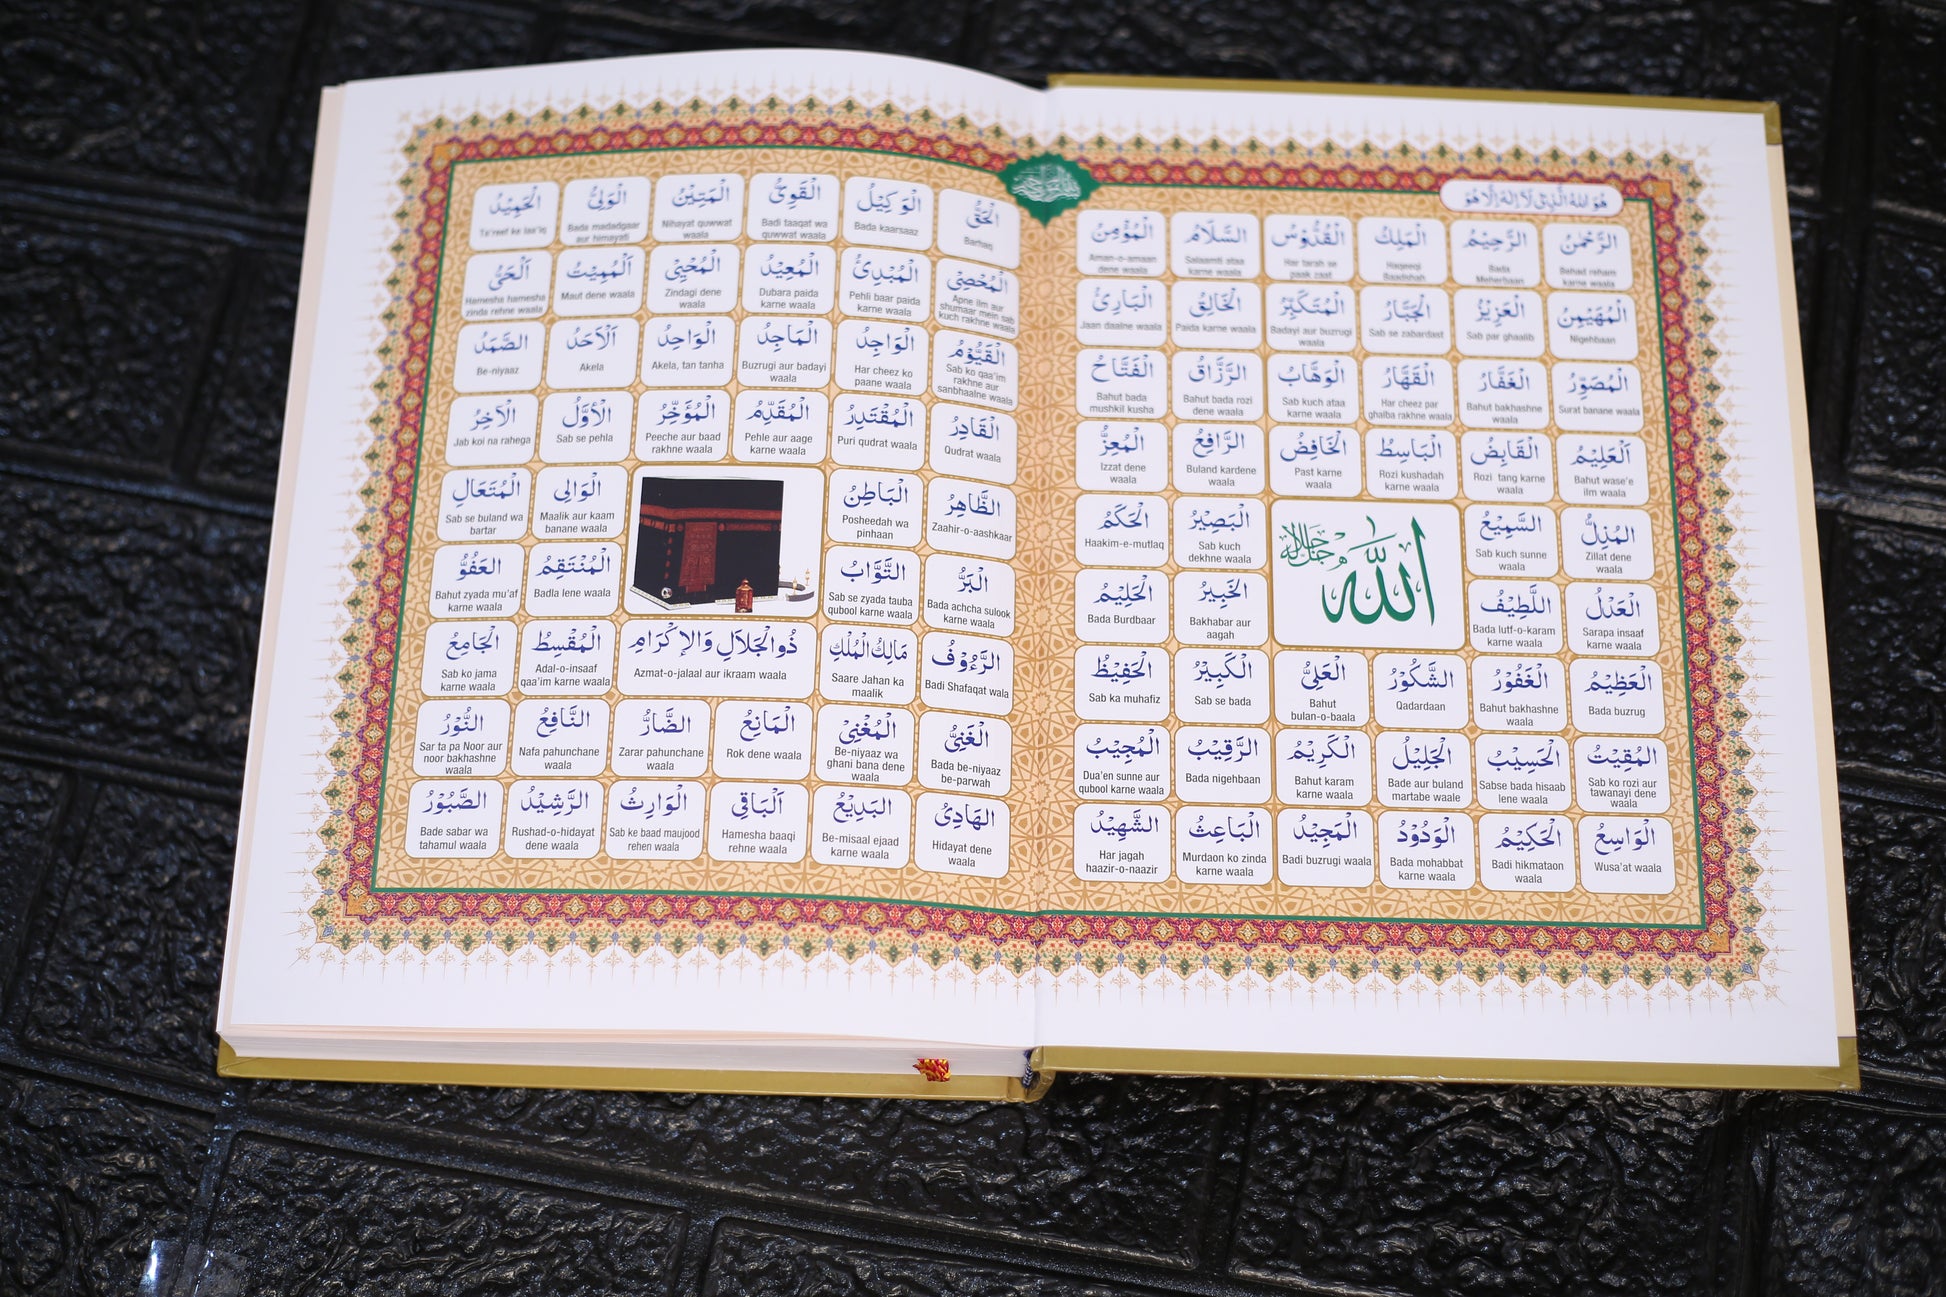 هُوَ اللهُ الَّذِىْ لَآ اِلٰهَ اِلَّا هُوَ
الرَّحْمٰنُ
Behad reham
karne waala
الرَّحِيْمُ
Bada
Meherbaan
الْمَلِكُ
Haqeeqi
Baadshah
الْقُدُّوْسُ
Har tarah se
paak zaat
السَّلَامُ
Salaamti ataa
karne waala
الْمُؤْمِنُ
Aman-o-amaan
dene waala
الْمُهَيْمِنُ
Nigehbaan
الْعَزِيْزُ
Sab par ghaalib
الْجَبَّارُ
Sab se zabardast
الْمُتَكَبِّرُ
Badayi aur buzrugi
waala
الْخَالِقُ
Paida karne waala
الْبَارِئُ
Jaan daalne waala
الْمُصَوِّرُ
Surat banane waala
الْغَفَّارُ
Bahut bakhashne
waala
الْقَهَّارُ
Har cheez par
ghalba rakhne waala
الْوَهَّابُ
Sab kuch ataa
karne waala
الرَّزَّاقُ
Bahut bada rozi
dene waala
الْفَتَّاحُ
Bahut bada
mushkil kusha
اَلْعَلِيْمُ
Bahut wase'e
ilm waala
الْقَابِضُ
Rozi tang karne
waala
الْبَاسِطُ
Rozi kushadah
karne waala
الْخَافِضُ
Past karne
waala
الرَّافِعُ
Buland kardene
waala
الْمُعِزُّ
Izzat dene
waala
الْمُذِلُّ
Zillat dene
waala
السَّمِيْعُ
Sab kuch sunne
waala
الْبَصِيْرُ
Sab kuch
dekhne waala
الْحَكَمُ
Haakim-e-mutlaq
الله جل جلاله
الْعَدْلُ
Sarapa insaaf
karne waala
اللَّطِيْفُ
Bada lutf-o-karam
karne waala
الْخَبِيْرُ
Bakhabar aur
aagah
الْحَلِيْمُ
Bada Burdbaar
الْعَظِيْمُ
Bada buzrug
الْغَفُوْرُ
Bahut bakhashne
waala
الشَّكُوْرُ
Qadardaan
الْعَلِىُّ
Bahut
bulan-o-baala
الْكَبِيْرُ
Sab se bada
الْحَفِيْظُ
Sab ka muhafiz
المُقِيْتُ
Sab ko rozi aur
tawanayi dene
waala
الْحَسِيْبُ
Sabse bada hisaab
lene waala
الْجَلِيْلُ
Bade aur buland
martabe waale
الْكَرِيْمُ
Bahut karam
karne waala
الرَّقِيْبُ
Bada nigehbaan
الْمُجِيْبُ
Dua'en sunne aur
qubool karne waala
الْوَاسِعُ
Wusa'at waala
الْحَكِيْمُ
Badi hikmataon
waala
الْوَدُوْدُ
Bada mohabbat
karne waala
الْمَجِيْدُ
Badi buzrugi waala
الْبَاعِثُ
Murdaon ko zinda
karne waala
الشَّهِيْدُ
Har jagah
haazir-o-naazir
الْحَقُّ
Barhaq
الْوَكِيْلُ
Bada kaarsaaz
الْقَوِىُّ
Badi taaqat wa
quwwat waala
الْمَتِيْنُ
Nihayat quwwat
waala
الْوَلِىُّ
Bada madadgaar
aur himayati
الْحَمِيْدُ
Ta'reef ke laa'iq
الْمُحْصِىْ
Apne ilm aur
shumaar mein sab
kuch rakhne waala
الْمُبْدِئُ
Pehli baar paida
karne waala
الْمُعِيْدُ
Dubara paida
karne waala
الْمُحْيِىْ
Zindagi dene
waala
اَلْمُمِيْتُ
Maut dene waala
اَلْحَىُّ
Hamesha hamesha
zinda rehne waala
الْقَيُّوْمُ
Sab ko qaa'im
rakhne aur
sanbhaalne waala
الْوَاجِدُ
Har cheez ko
paane waala
الْمَاجِدُ
Buzrugi aur badayi
waala
الْوَاحِدُ
Akela, tan tanha
اَلْاَحَدُ
Akela
الصَّمَدُ
Be-niyaaz
الْقَادِرُ
Qudrat waala
الْمُقْتَدِرُ
Puri qudrat waala
الْمُقَدِّمُ
Pehle aur aage
karne waala
الْمُؤَخِّرُ
Peeche aur baad
rakhne waala
الْأَوَّلُ
Sab se pehla
الْاٰخِرُ
Jab koi na rahega
الظَّاهِرُ
Zaahir-o-aashkaar
الْبَاطِنُ
Posheedah wa
pinhaan
الْوَالِى
Maalik aur kaam
banane waala
الْمُتَعَالِ
Sab se buland wa
bartar
الْبَرُّ
Bada achcha sulook
karne waala
التَّوَّابُ
Sab se zyada tauba
qubool karne waala
الْمُنْتَقِمُ
Badla lene waala
العَفُوُّ
Bahut zyada mu'af
karne waala
الرَّءُوْفُ
Badi Shafaqat wala
مَالِكُ الْمُلْكِ
Saare Jahan ka
maalik
ذُوالْجَلَالِ وَالْاِكْرَامِ
Azmat-o-jalaal aur ikraam waala
الْمُقْسِطُ
Adal-o-insaaf
qaa'im karne waala
الْجَامِعُ
Sab ko jama
karne waala
الْغَنِىُّ
Bada be-niyaaz
be-parwah
الْمُغْنِىْ
Be-niyaaz wa
ghani bana dene
waala
الْمَانِعُ
Rok dene waala
الضَّارُّ
Zarar pahunchane
waala
النَّافِعُ
Nafa pahunchane
waala
النُّوْرُ
Sar ta pa Noor aur
noor bakhashne
waala
الْهَادِىْ
Hidayat dene
waala
الْبَدِيْعُ
Be-misaal ejaad
karne waala
اَلْبَاقِى
Hamesha baaqi
rehne waala
الْوَارِثُ
Sab ke baad maujood
rehen waala
الرَّشِيْدُ
Rushad-o-hidayat
dene waala
الصَّبُوْرُ
Bade sabar wa
tahamul waala